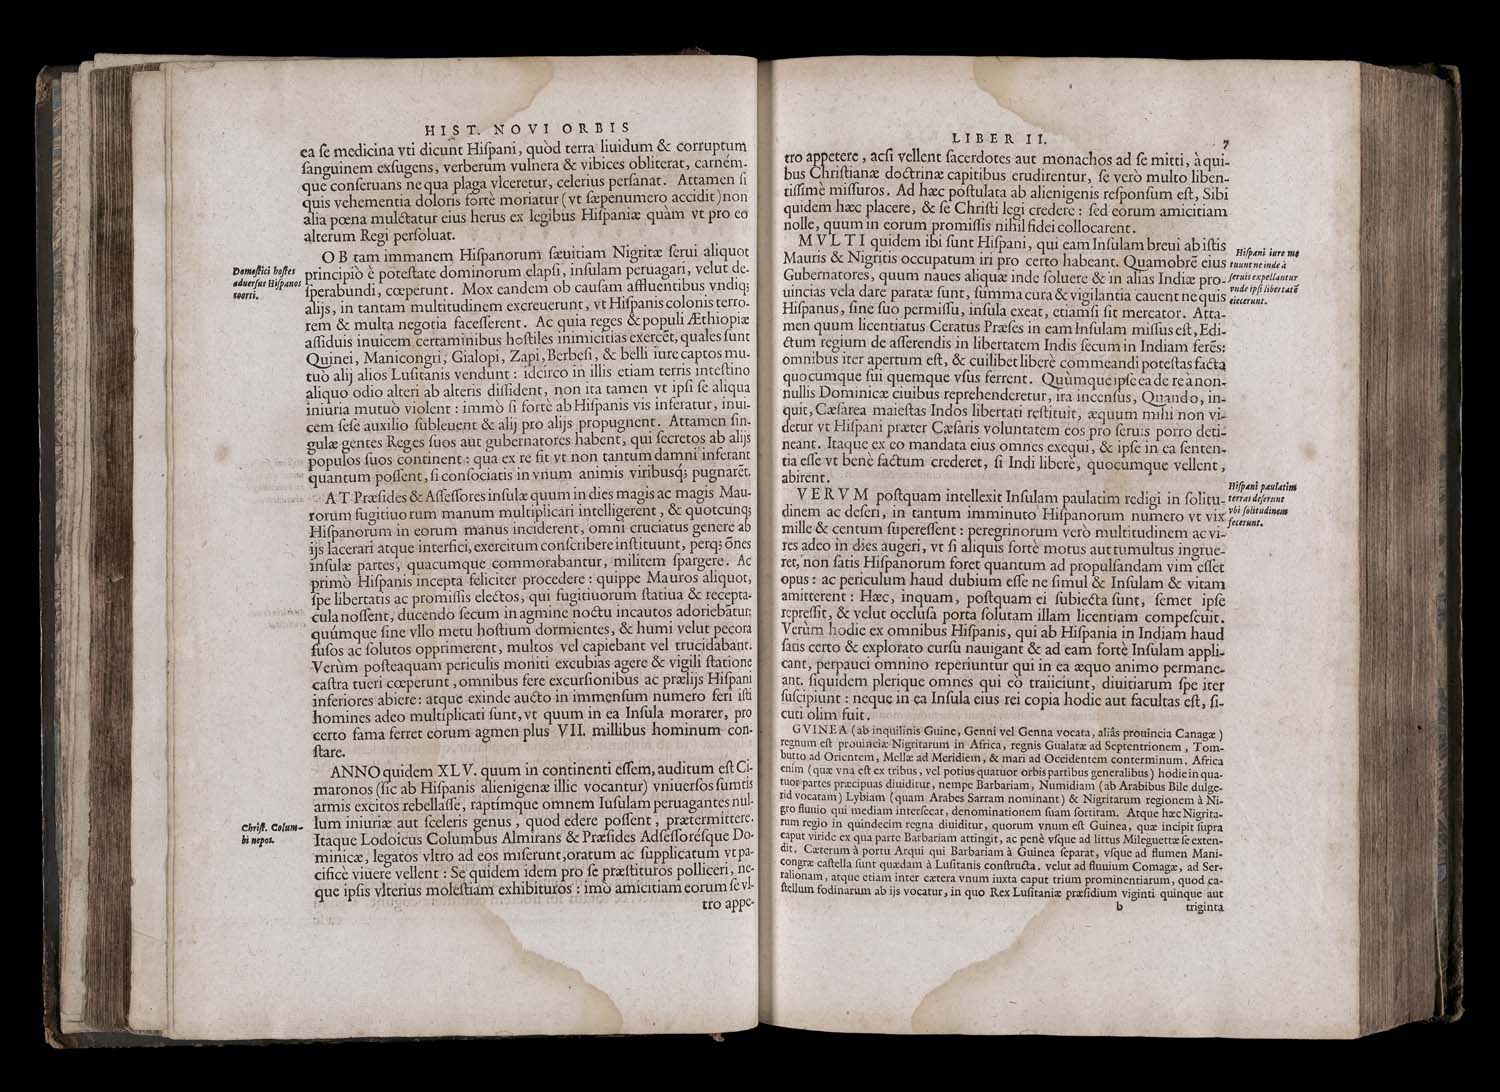 HIST. NOVI ORBIS
ea ſe medicina vti dicunt Hiſpani, quòd terra liuidum & corruptum
ſanguinem exſugens, verberum vulnera & vibices obliterat, carném-
que conſeruans ne qua plaga vlceretur, celerius perſanat. Attamen ſi
quis vehementia doloris fortè moriatur (vt ſæpenumero accidit) non
alia pœna mulctatur eius herus ex legibus Hiſpaniæ quàm vt pro eo
alterum Regi perſoluat.
OB tam immanem Hiſpanorum ſæuitiam Nigritæ ſerui aliquot
Domeſtici hoſtes
aduerſus Hiſpanos
coorti.
principiò è poteſtate dominorum elapſi, inſulam peruagari, velut de-
ſperabundi, cœperunt. Mox eandem ob cauſam affluentibus vndiq;
alijs, in tantam multitudinem excreuerunt, vt Hiſpanis colonis terro-
rem & multa negotia faceſſerent. Ac quia reges & populi Æthiopiæ
aſſiduis inuicem certaminibus hoſtiles inimicitias exercẽt, quales ſunt
Quinei, Manicongri, Gialopi, Zapi, Berbeſi, & belli iure captos mu-
tuò alij alios Luſitanis vendunt : idcirco in illis etiam terris inteſtino
aliquo odio alteri ab alteris diſſident, non ita tamen vt ipſi ſe aliqua
iniuria mutuò violent : immò ſi fortè ab Hiſpanis vis inferatur, inui-
cem ſeſe auxilio ſubleuent & alij pro alijs propugnent. Attamen ſin-
gulæ gentes Reges ſuos aut gubernatores habent, qui ſecretos ab alijs
populos ſuos continent : qua ex re fit vt non tantum damni inferant
quantum poſſent, ſi conſociatis in vnum animis viribusq́; pugnarẽt.
AT Præſides & Aſſeſſores inſulæ quum in dies magis ac magis Mau-
rorum fugitiuorum manum multiplicari intelligerent, & quotcunq;
Hiſpanorum in eorum manus inciderent, omni cruciatus genere ab
ijs lacerari atque interfici, exercitum conſcribere inſtituunt, perq; õnes
inſulæ partes, quacumque commorabantur, militem ſpargere. Ac
primò Hiſpanis incepta feliciter procedere : quippe Mauros aliquot,
ſpe libertatis ac promiſſis electos, qui fugitiuorum ſtatiua & recepta-
cula noſſent, ducendo ſecum in agmine noctu incautos adoriebãtur:
quúmque ſine vllo metu hoſtium dormientes, & humi velut pecora
fuſos ac ſolutos opprimerent, multos vel capiebant vel trucidabant.
Verùm poſteaquam periculis moniti excubias agere & vigili ſtatione
caſtra tueri cœperunt, omnibus fere excurſionibus ac prælijs Hiſpani
inferiores abiere : atque exinde aucto in immenſum numero feri iſti
homines adeo multiplicati ſunt, vt quum in ea Inſula morarer, pro
certo fama ferret eorum agmen plus VII. millibus hominum con-
ſtare.
ANNO quidem XLV. quum in continenti eſſem, auditum eſt Ci-
maronos (ſic ab Hiſpanis alienigenæ illic vocantur) vniuerſos ſumtis
armis excitos rebellaſſe, raptímque omnem Iuſulam peruagantes nul-
lum iniuriæ aut ſceleris genus, quod edere poſſent, prætermittere.
Chriſt. Colum-
bi nepos.
Itaque Lodoicus Columbus Almirans & Præſides Adſeſſoréſque Do-
minicæ, legatos vltro ad eos miſerunt, oratum ac ſupplicatum vt pa-
cificè viuere vellent : Se quidem idem pro ſe præſtituros polliceri, ne-
que ipſis vlterius moleſtiam exhibituros : imò amicitiam eorum ſe vl-
tro appe-
LIBER II. 7
tro appetere, acſi vellent ſacerdotes aut monachos ad ſe mitti, à qui-
bus Chriſtianæ doctrinæ capitibus erudirentur, ſe verò multo liben-
tiſſimè miſſuros. Ad hæc poſtulata ab alienigenis reſponſum eſt, Sibi
quidem hæc placere, & ſe Chriſti legi credere : ſed eorum amicitiam
nolle, quum in eorum promiſſis nihil fidei collocarent.
MVLTI quidem ibi ſunt Hiſpani, qui eam Inſulam breui ab iſtis
Mauris & Nigritis occupatum iri pro certo habeant. Quamobrẽ eius
Gubernatores, quum naues aliquæ inde ſoluere & in alias Indiæ pro-
uincias vela dare paratæ ſunt, ſumma cura & vigilantia cauent ne quis
Hiſpani iure me
tuunt ne inde à
ſeruis expellantur
vnde ipſi libertatẽ
eiecerunt.
Hiſpanus, ſine ſuo permiſſu, inſula exeat, etiamſi ſit mercator. Atta-
men quum licentiatus Ceratus Præſes in eam Inſulam miſſus eſt, Edi-
ctum regium de aſſerendis in libertatem Indis ſecum in Indiam ferẽs:
omnibus iter apertum eſt, & cuilibet liberè commeandi poteſtas facta
quocumque ſui quemque vſus ferrent. Quùmque ipſe ea de re à non-
nullis Dominicæ ciuibus reprehenderetur, ira incenſus, Quando, in-
quit, Cæſarea maieſtas Indos libertati reſtituit, æquum mihi non vi-
detur vt Hiſpani præter Cæſaris voluntatem eos pro ſeruis porro deti-
neant. Itaque ex eo mandata eius omnes exequi, & ipſe in ea ſenten-
tia eſſe vt benè factum crederet, ſi Indi liberè, quocumque vellent,
abirent.
VERVM poſtquam intellexit Inſulam paulatim redigi in ſolitu-
dinem ac deſeri, in tantum imminuto Hiſpanorum numero vt vix
Hiſpani paulatim
terras deſerunt
vbi ſolitudinem
fecerunt.
mille & centum ſupereſſent : peregrinorum verò multitudinem ac vi-
res adeo in dies augeri, vt ſi aliquis fortè motus aut tumultus ingrue-
ret, non ſatis Hiſpanorum foret quantum ad propulſandam vim eſſet
opus : ac periculum haud dubium eſſe ne ſimul & Inſulam & vitam
amitterent : Hæc, inquam, poſtquam ei ſubiecta ſunt, ſemet ipſe
repreſſit, & velut occluſa porta ſolutam illam licentiam compeſcuit.
Verùm hodie ex omnibus Hiſpanis, qui ab Hiſpania in Indiam haud
ſatis certo & explorato curſu nauigant & ad eam fortè Inſulam appli-
cant, perpauci omnino reperiuntur qui in ea æquo animo permane-
ant. ſiquidem plerique omnes qui eò traiiciunt, diuitiarum ſpe iter
ſuſcipiunt : neque in ea Inſula eius rei copia hodie aut facultas eſt, ſi-
cuti olim fuit.
GVINEA (ab inquilinis Guine, Genni vel Genna vocata, aliâs prouincia Canagæ)
regnum eſt prouinciæ Nigritarum in Africa, regnis Gualatæ ad Septentrionem, Tom-
butto ad Orientem, Mellæ ad Meridiem, & mari ad Occidentem conterminum. Africa
enim (quæ vna eſt ex tribus, vel potius quatuor orbis partibus generalibus) hodie in qua-
tuor partes præcipuas diuiditur, nempe Barbariam, Numidiam (ab Arabibus Bile dulge-
rid vocatam) Lybiam (quam Arabes Sarram nominant) & Nigritarum regionem à Ni-
gro fluuio qui mediam interſecat, denominationem ſuam ſortitam. Atque hæc Nigrita-
rum regio in quindecim regna diuiditur, quorum vnum eſt Guinea, quæ incipit ſupra
caput viride ex qua parte Barbariam attingit, ac penè vſque ad littus Mileguettæ ſe exten-
dit. Cæterum à portu Arqui qui Barbariam à Guinea ſeparat, vſque ad flumen Mani-
congræ caſtella ſunt quædam à Luſitanis conſtructa. velut ad fluuium Comagæ, ad Ser-
ralionam, atque etiam inter cætera vnum iuxta caput trium prominentiarum, quod ca-
ſtellum fodinarum ab ijs vocatur, in quo Rex Luſitaniæ præſidium viginti quinque aut
b triginta